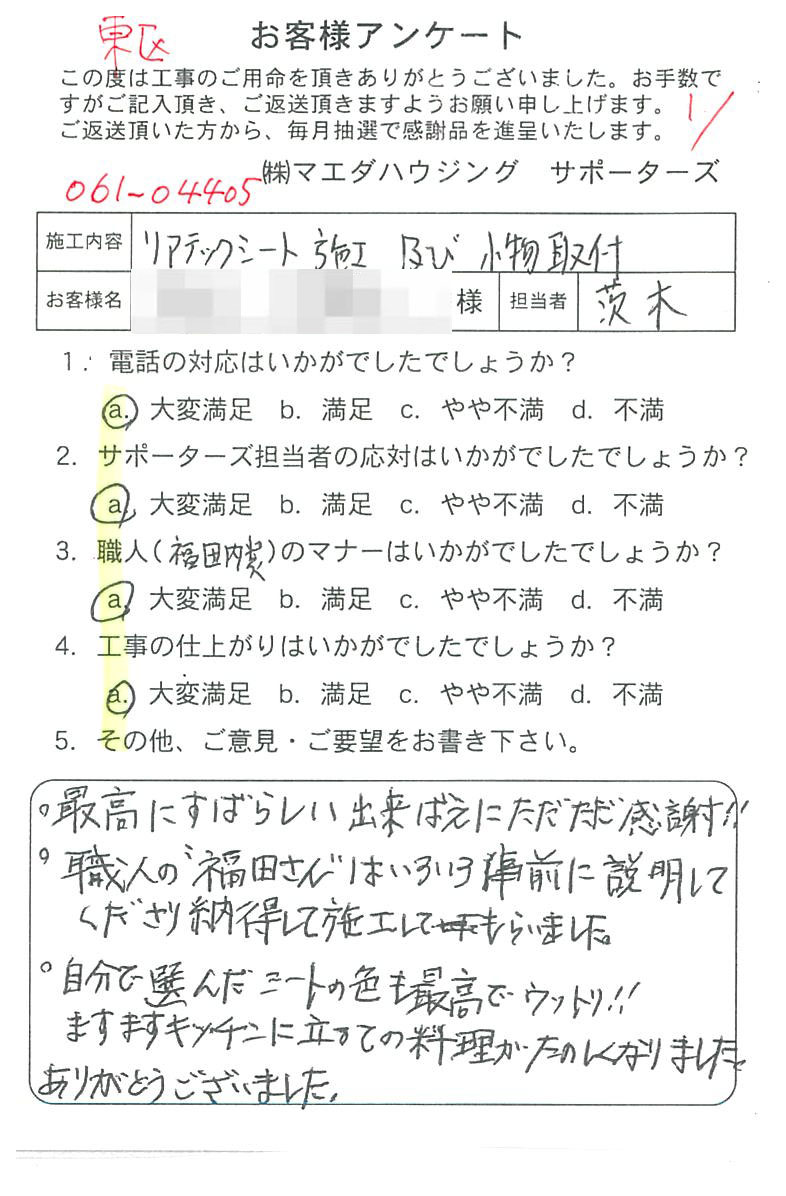 東区
お客様アンケート
この度は工事のご用命を頂きありがとうございました。お手数で
すがご記入頂き、ご返送頂きますようお願い申し上げます。
ご返送頂いた方から、毎月抽選で感謝品を進呈いたします。
1/
㈱マエダハウジング サポーターズ
061-04405
施工内容 リアテックシート施工 及び 小物取付
お客様名 様 担当者 茨木
1. 電話の対応はいかがでしたでしょうか？
a. 大変満足 b. 満足 c. やや不満 d. 不満
2. サポーターズ担当者の応対はいかがでしたでしょうか？
a. 大変満足 b. 満足 c. やや不満 d. 不満
3. 職人(福田内装)のマナーはいかがでしたでしょうか？
a. 大変満足 b. 満足 c. やや不満 d. 不満
4. 工事の仕上がりはいかがでしたでしょうか？
a. 大変満足 b. 満足 c. やや不満 d. 不満
5. その他、ご意見・ご要望をお書き下さい。
○最高にすばらしい出来ばえにただただ感謝!!
○職人の"福田さん"はいろいろ事前に説明して
くださり納得して施工してもらいました。
○自分で選んだシートの色も最高でウットリ!!
ますますキッチンに立っての料理がたのしくなりました。
ありがとうございました。